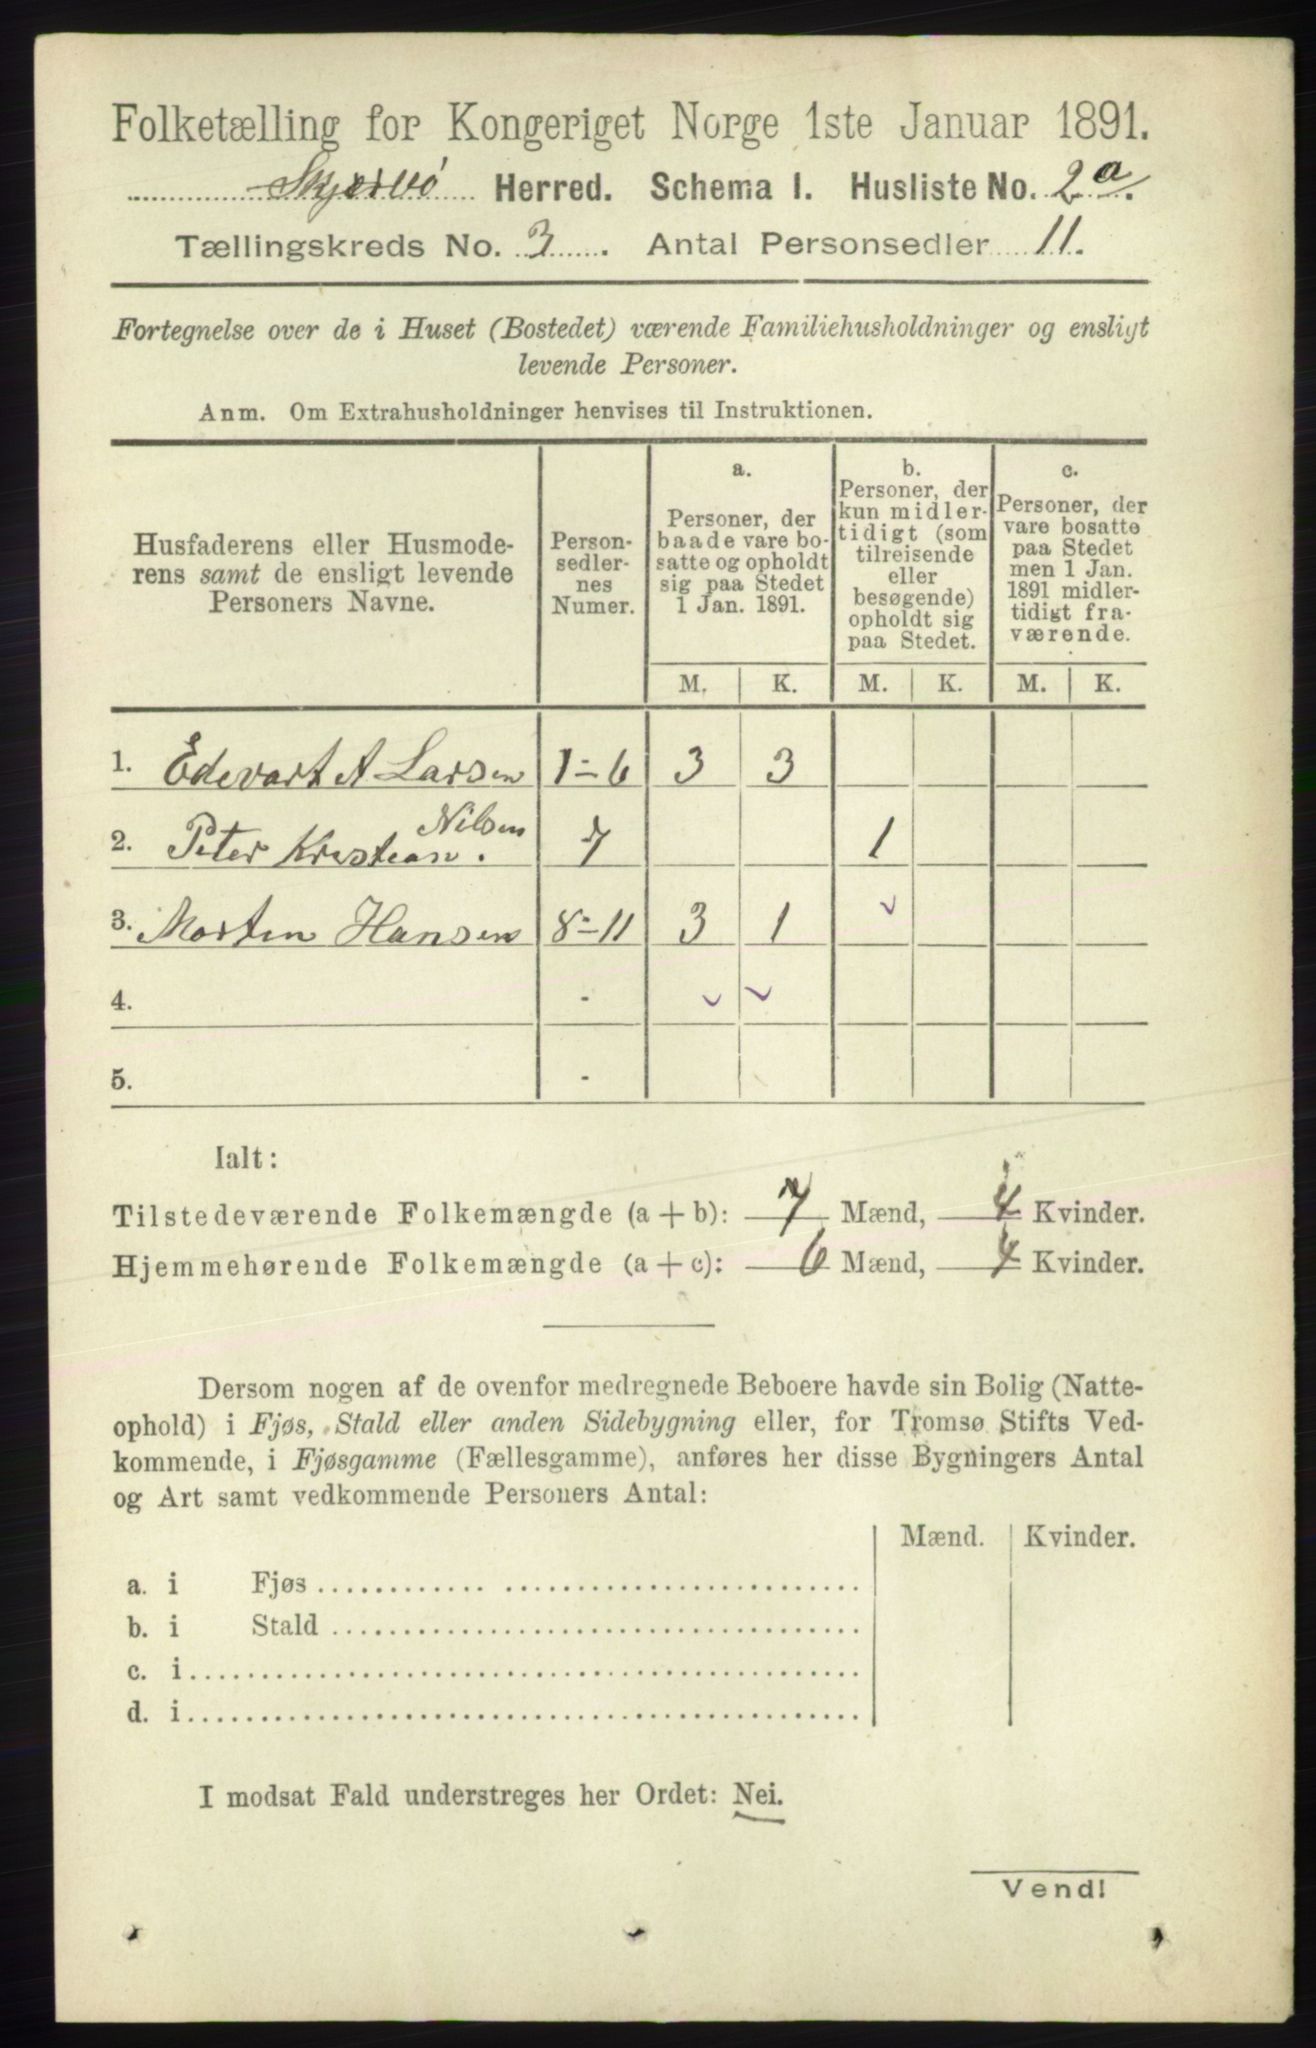 Folketælling for Kongeriget Norge 1ste Januar 1891.
Skjervö Herred. Schema I. Husliste No. 2a.
Tællingskreds No. 3. Antal Personsedler 11.
Fortegnelse over de i Huset (Bostedet) værende Familiehusholdninger og ensligt
levende Personer.
Anm. Om Extrahusholdninger henvises til Instruktionen.
Husfaderens eller Husmode-
rens samt de ensligt levende
Personers Navne.
Person-
sedler-
nes
Numer.
a.
Personer, der
baade vare bo-
satte og opholdt
sig paa Stedet
1 Jan. 1891.
b.
Personer, der
kun midler-
tidigt (som
tilreisende
eller
besøgende)
opholdt sig
paa Stedet.
c.
Personer, der
vare bosatte
paa Stedet
men 1 Jan.
1891 midler-
tidigt fra-
værende.
M. K. M. K. M. K.
1. Edevart A Larsen 1-6 3 3
2. Peter Kristean Nilsen. 7 1
3. Morten Hansen 8-11 3 1
4. -
5. -
Ialt:
Tilstedeværende Folkemængde (a + b): 7 Mænd, 4 Kvinder.
Hjemmehørende Folkemængde (a + c): 6 Mænd, 4 Kvinder.
Dersom nogen af de ovenfor medregnede Beboere havde sin Bolig (Natte-
ophold) i Fjøs, Stald eller anden Sidebygning eller, for Tromsø Stifts Ved-
kommende, i Fjøsgamme (Fællesgamme), anføres her disse Bygningers Antal
og Art samt vedkommende Personers Antal:
Mænd. Kvinder.
a. i Fjøs
b. i Stald
c. i
d. i
I modsat Fald understreges her Ordet: Nei.
Vend!